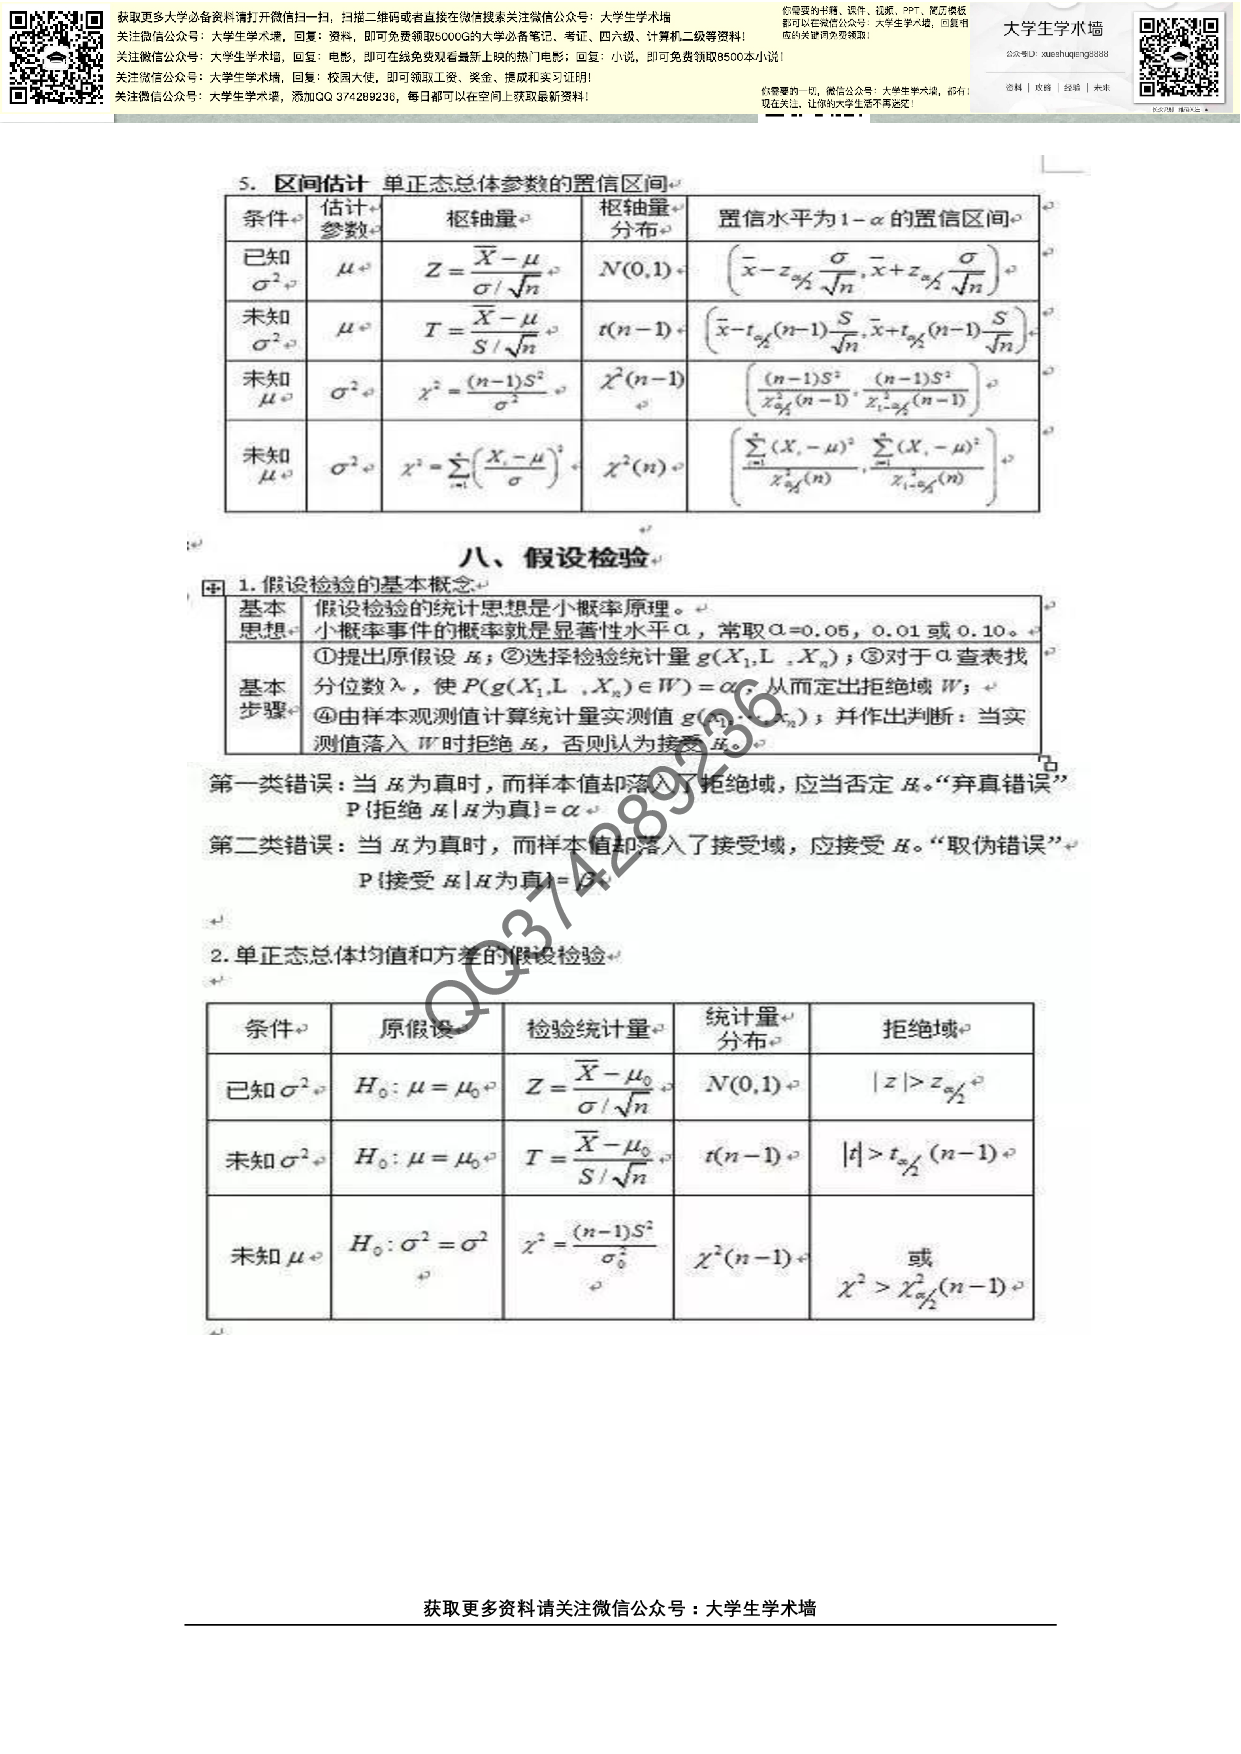 获取更多大学必备资料请打开微信扫一扫，扫描二维码或者直接在微信搜索关注微信公众号：大学生学术墙
关注微信公众号：大学生学术墙，回复：资料，即可免费领取5000G的大学必备笔记、考证、四六级、计算机二级等资料！
关注微信公众号：大学生学术墙，回复：电影，即可在线免费观看最新上映的热门电影；回复：小说，即可免费领取8500本小说！
关注微信公众号：大学生学术墙，回复：校园大使，即可领取工资、奖金、提成和实习证明！
关注微信公众号：大学生学术墙，添加QQ 374289236，每日都可以在空间上获取最新资料！
你需要的书籍、课件、视频、PPT、简历模板
都可以在微信公众号：大学生学术墙，回复相
应的关键词免费领取！
你需要的一切，微信公众号：大学生学术墙，都有！
现在关注，让你的大学生活不再迷茫！
大学生学术墙
公众号ID: xueshuqiang8888
资料 | 攻略 | 经验 | 未来
5. 区间估计 单正态总体参数的置信区间
条件 估计参数 枢轴量 枢轴量分布 置信水平为1-α的置信区间
已知σ² μ Z = (X̄-μ)/(σ/√n) N(0,1) (x̄-z_{α/2} σ/√n, x̄+z_{α/2} σ/√n)
未知σ² μ T = (X̄-μ)/(S/√n) t(n-1) (x̄-t_{α/2}(n-1) S/√n, x̄+t_{α/2}(n-1) S/√n)
未知μ σ² χ² = (n-1)S²/σ² χ²(n-1) ((n-1)S²/χ²_{α/2}(n-1), (n-1)S²/χ²_{1-α/2}(n-1))
未知μ σ² χ² = Σ_{i=1}^{n}((X_i-μ)/σ)² χ²(n) (Σ_{i=1}^{n}(X_i-μ)²/χ²_{α/2}(n), Σ_{i=1}^{n}(X_i-μ)²/χ²_{1-α/2}(n))
八、假设检验
1. 假设检验的基本概念
基本思想 假设检验的统计思想是小概率原理。
小概率事件的概率就是显著性水平α，常取α=0.05，0.01或0.10。
基本步骤 ①提出原假设H₀；②选择检验统计量g(X₁,L ,Xₙ)；③对于α查表找
分位数λ，使P(g(X₁,L ,Xₙ)∈W)=α，从而定出拒绝域W；
④由样本观测值计算统计量实测值g(x₁,⋯,xₙ)；并作出判断：当实
测值落入W时拒绝H₀，否则认为接受H₀。
第一类错误：当H₀为真时，而样本值却落入了拒绝域，应当否定H₀。“弃真错误”
P{拒绝H₀|H₀为真}=α
第二类错误：当H₁为真时，而样本值却落入了接受域，应接受H₀。“取伪错误”
P{接受H₀|H₁为真}=β
2. 单正态总体均值和方差的假设检验
条件 原假设 检验统计量 统计量分布 拒绝域
已知σ² H₀: μ=μ₀ Z = (X̄-μ₀)/(σ/√n) N(0,1) |z|>z_{α/2}
未知σ² H₀: μ=μ₀ T = (X̄-μ₀)/(S/√n) t(n-1) |t|>t_{α/2}(n-1)
未知μ H₀: σ²=σ² χ² = (n-1)S²/σ₀² χ²(n-1) 或
χ²>χ²_{α/2}(n-1)
QQ374289236
获取更多资料请关注微信公众号：大学生学术墙